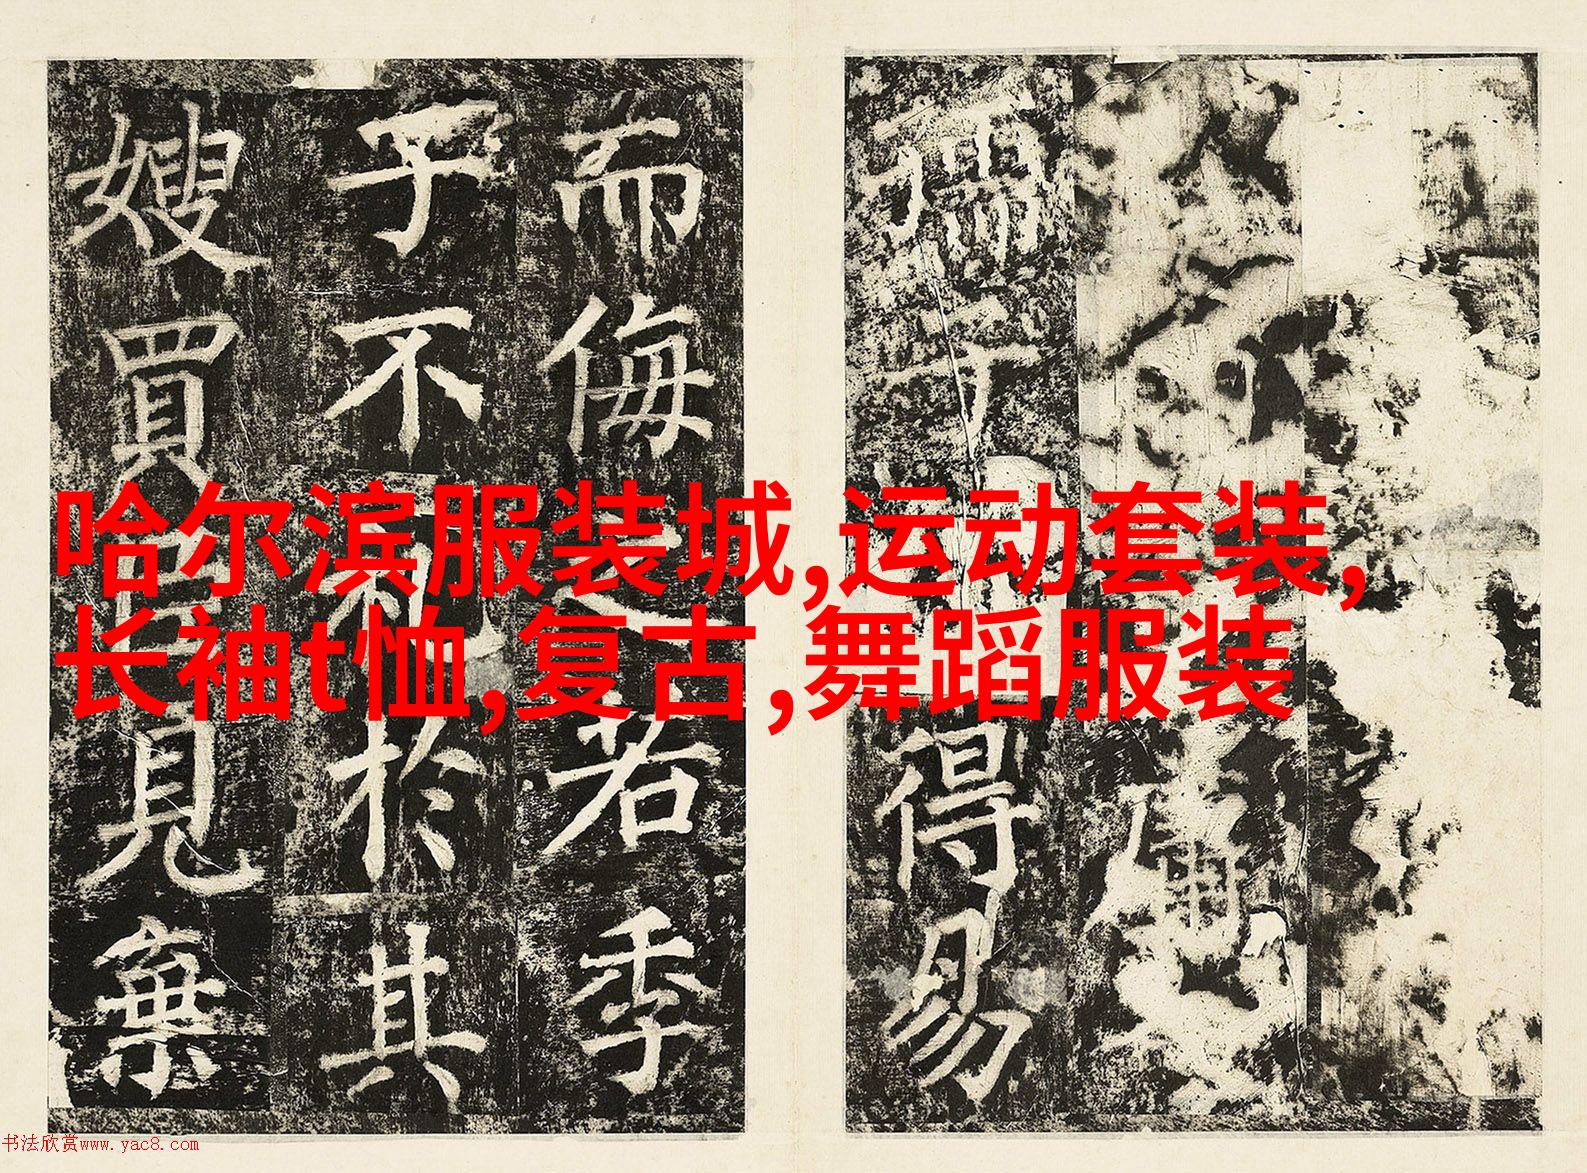 哈尔滨服装城,运动套装,
长袖t恤,复古,舞蹈服装
得易
而侮之若季
子不礼於其
嫂買臣見棄
书法欣赏www.yac8.com